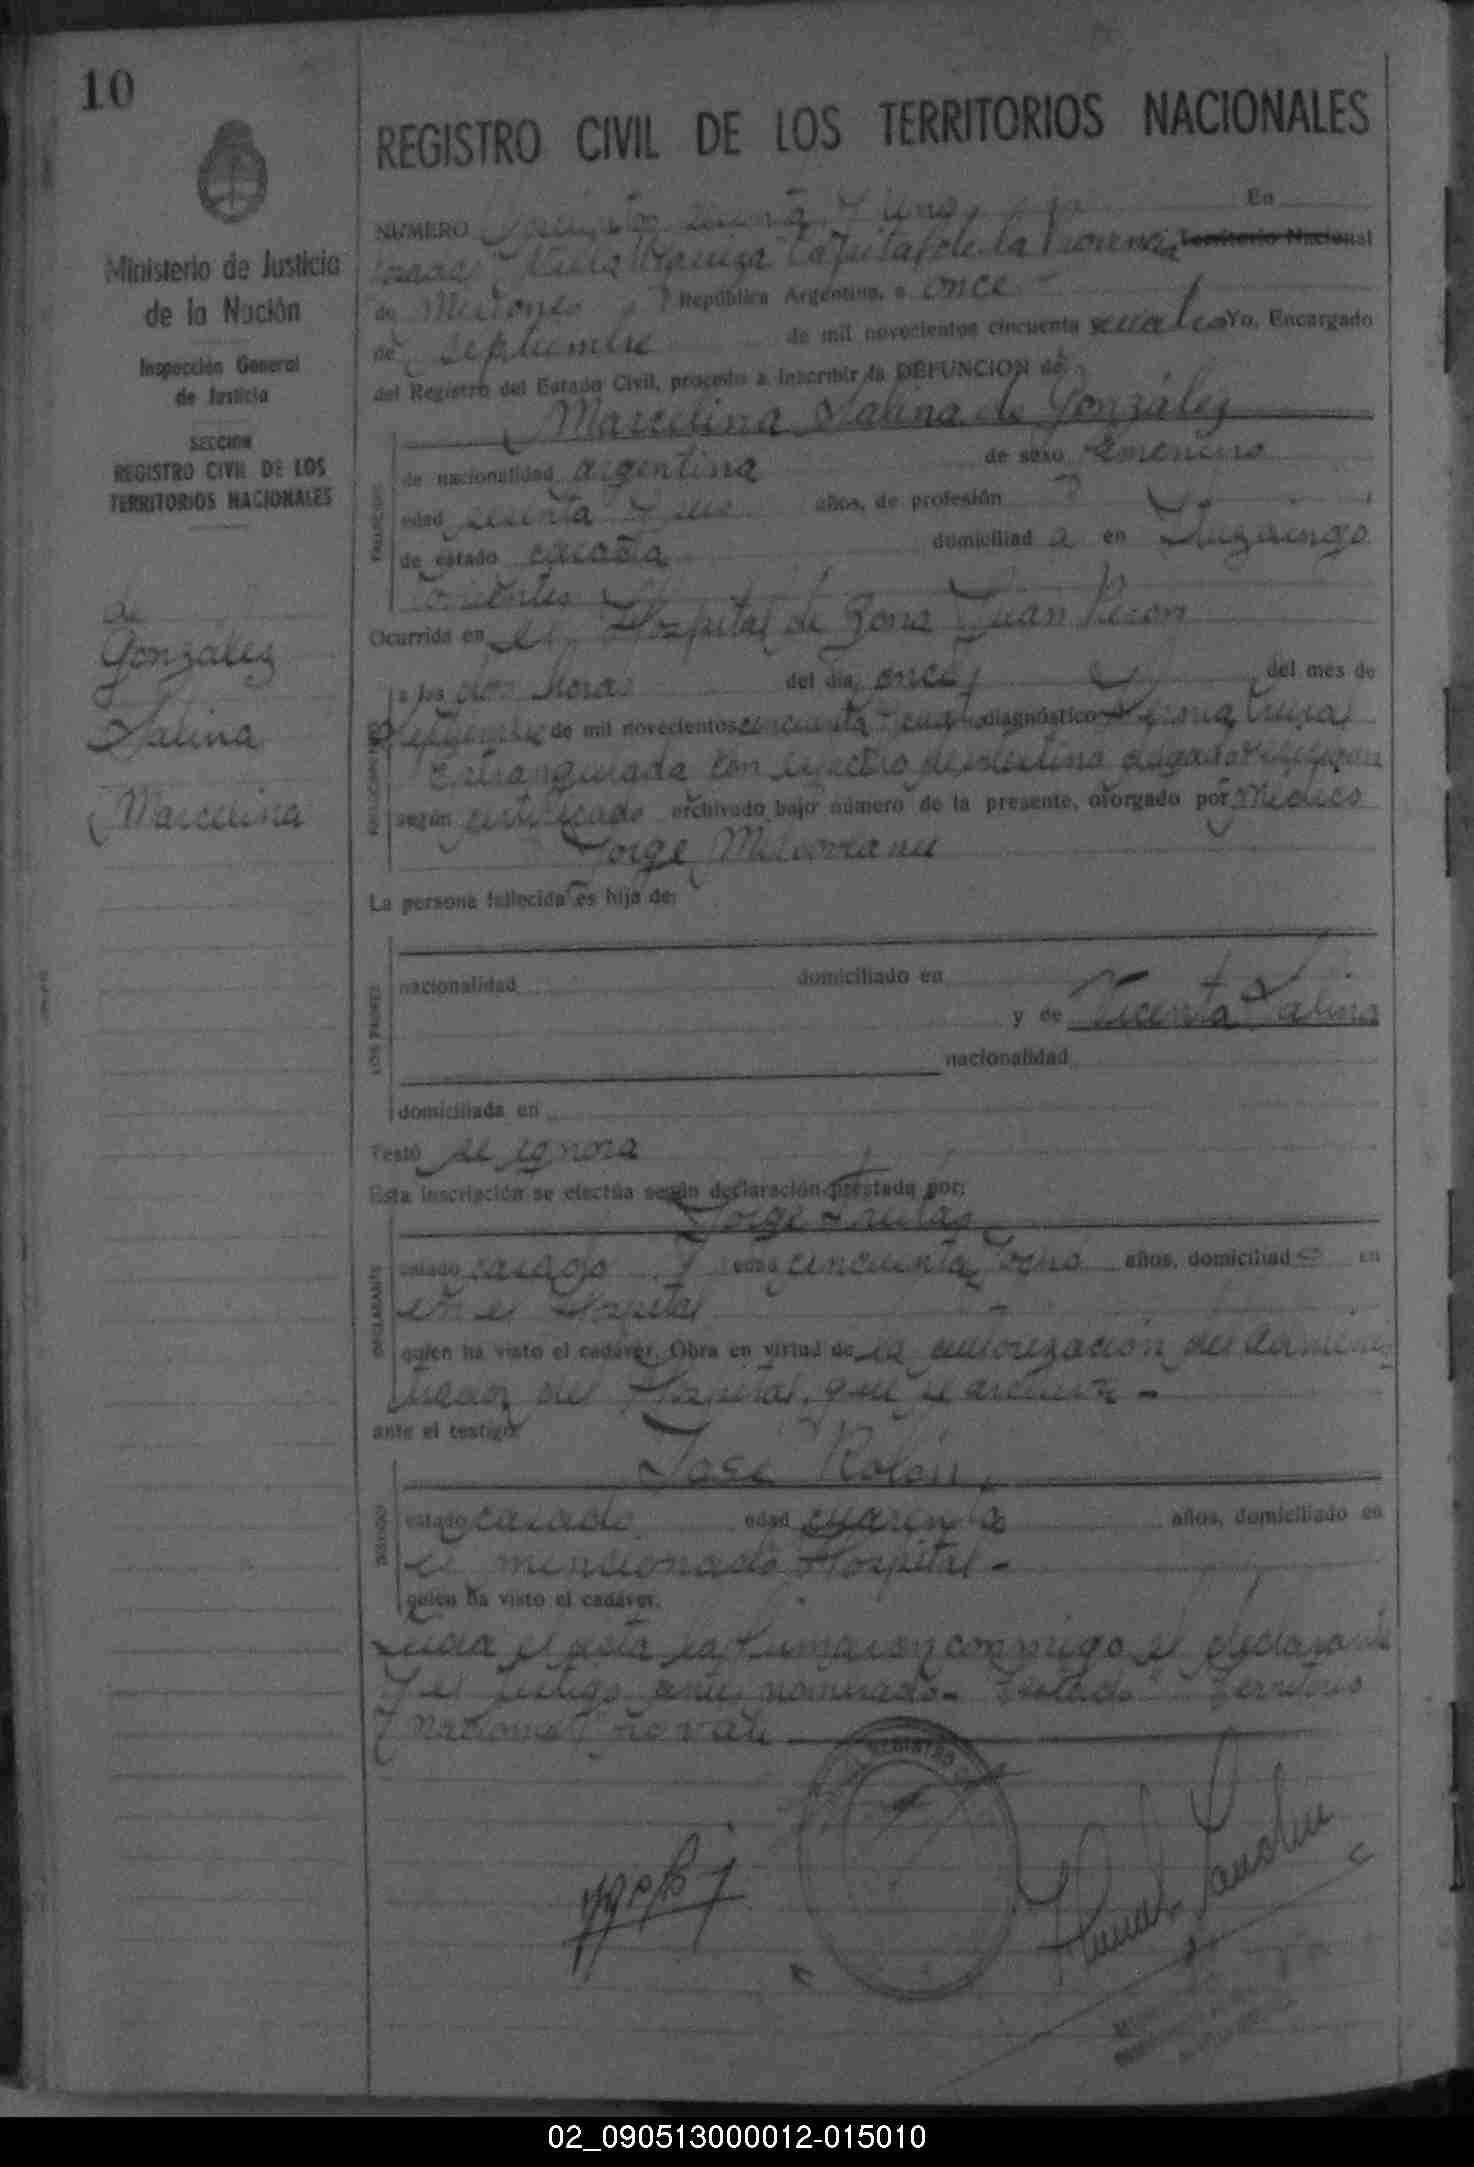 10
REGISTRO CIVIL DE LOS TERRITORIOS NACIONALES
Ministerio de Justicia
de la Nación
Inspección General
de Justicia
SECCION
REGISTRO CIVIL DE LOS
TERRITORIOS NACIONALES
de
González
Salina
Marcelina
NUMERO y uno, En
Capital de la Provincia Territorio Nacional
de Misiones República Argentina, a once
de septiembre de mil novecientos cincuenta y cuatro Yo, Encargado
del Registro del Estado Civil, procedo a inscribir la DEFUNCION de:
Marcelina Salina de González
FALLECIDO
de nacionalidad argentina de sexo femenino
edad y uno años, de profesión
de estado casada domiciliad a en Ituzaingó
Corrientes
Ocurrida en el Hospital de Zona Juan Perón
a las dos horas del día once del mes de
septiembre de mil novecientos cincuenta y cuatro diagnóstico Hernia
estrangulada con de intestino delgado
según certificado archivado bajo número de la presente, otorgado por Médico
Jorge
La persona fallecida es hija de:
LOS PADRES
nacionalidad domiciliado en
y de Vicenta Salina
nacionalidad
domiciliada en
Testó se ignora
Esta inscripción se efectúa según declaración prestada por:
Jorge
DECLARANTE
estado casado edad cincuenta y ocho años, domiciliad o en
en el Hospital
quien ha visto el cadáver. Obra en virtud de la autorización del adminis
trador del Hospital, que se archiva -
ante el testigo:
José Rolón
TESTIGO
estado casado edad cuarenta años, domiciliado en
el mencionado Hospital -
quien ha visto el cadáver.
Leida el acta la firmaron conmigo el declarante
y el testigo antes nominado - Testado "Territorio
Nacional" no vale
REGISTRO
02_090513000012-015010